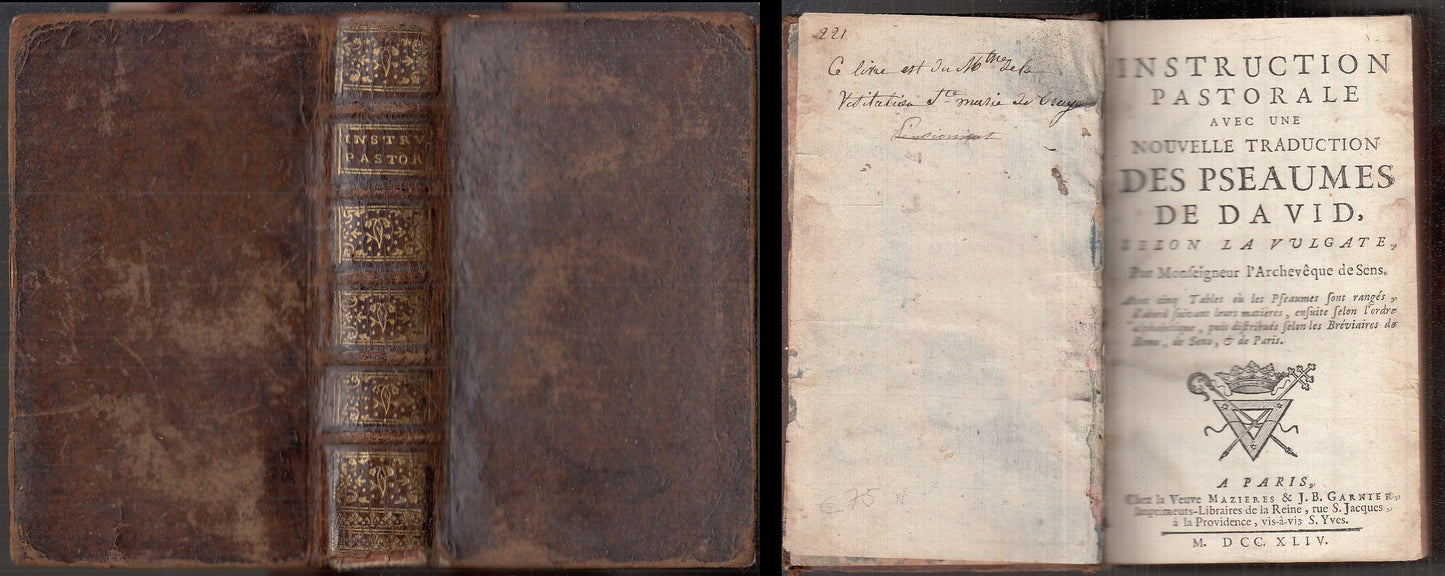 INSTRU
PASTOR
221
Ce livre est du Mtre de la
Visitation Ste marie de Troye
€ 75
INSTRUCTION
PASTORALE
AVEC UNE
NOUVELLE TRADUCTION
DES PSEAUMES
DE DAVID,
SELON LA VULGATE,
Par Monseigneur l'Archevêque de Sens.
Avec cinq Tables où les Pſeaumes ſont rangés,
d'abord ſuivant leurs matières, enſuite ſelon l'ordre
alphabétique, puis diſtribués ſelon les Bréviaires de
Rome, de Sens, & de Paris.
A PARIS,
Chez la Veuve MAZIERES & J. B. GARNIER,
Imprimeurs-Libraires de la Reine, rue S. Jacques,
à la Providence, vis-à-vis S. Yves.
M. DCC. XLIV.